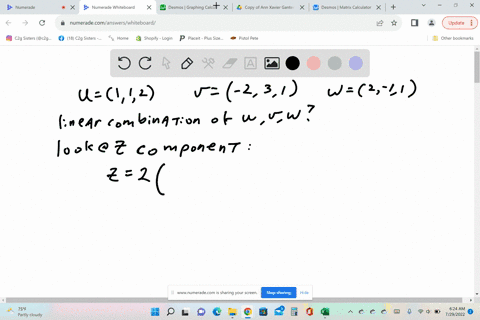 Numerade
Numerade Whiteboard
Desmos | Graphing Calc
Copy of Ann Xavier Gantt
Desmos | Matrix Calculator
numerade.com/answers/whiteboard/
Update
C2g Sisters (@c2g...
C2g Sisters
Home
Shopify - Login
Placeit - Plus Size...
Patol Pete
Other bookmarks
u = (1,1,2) v = (-2, 3, 1) w = (2,-1,1)
linear combination of u,v,w?
look@z component:
z = 2(
www.numerade.com is sharing your screen.
Stop sharing
Hide
73°F
Partly cloudy
4:24 AM
7/29/2022